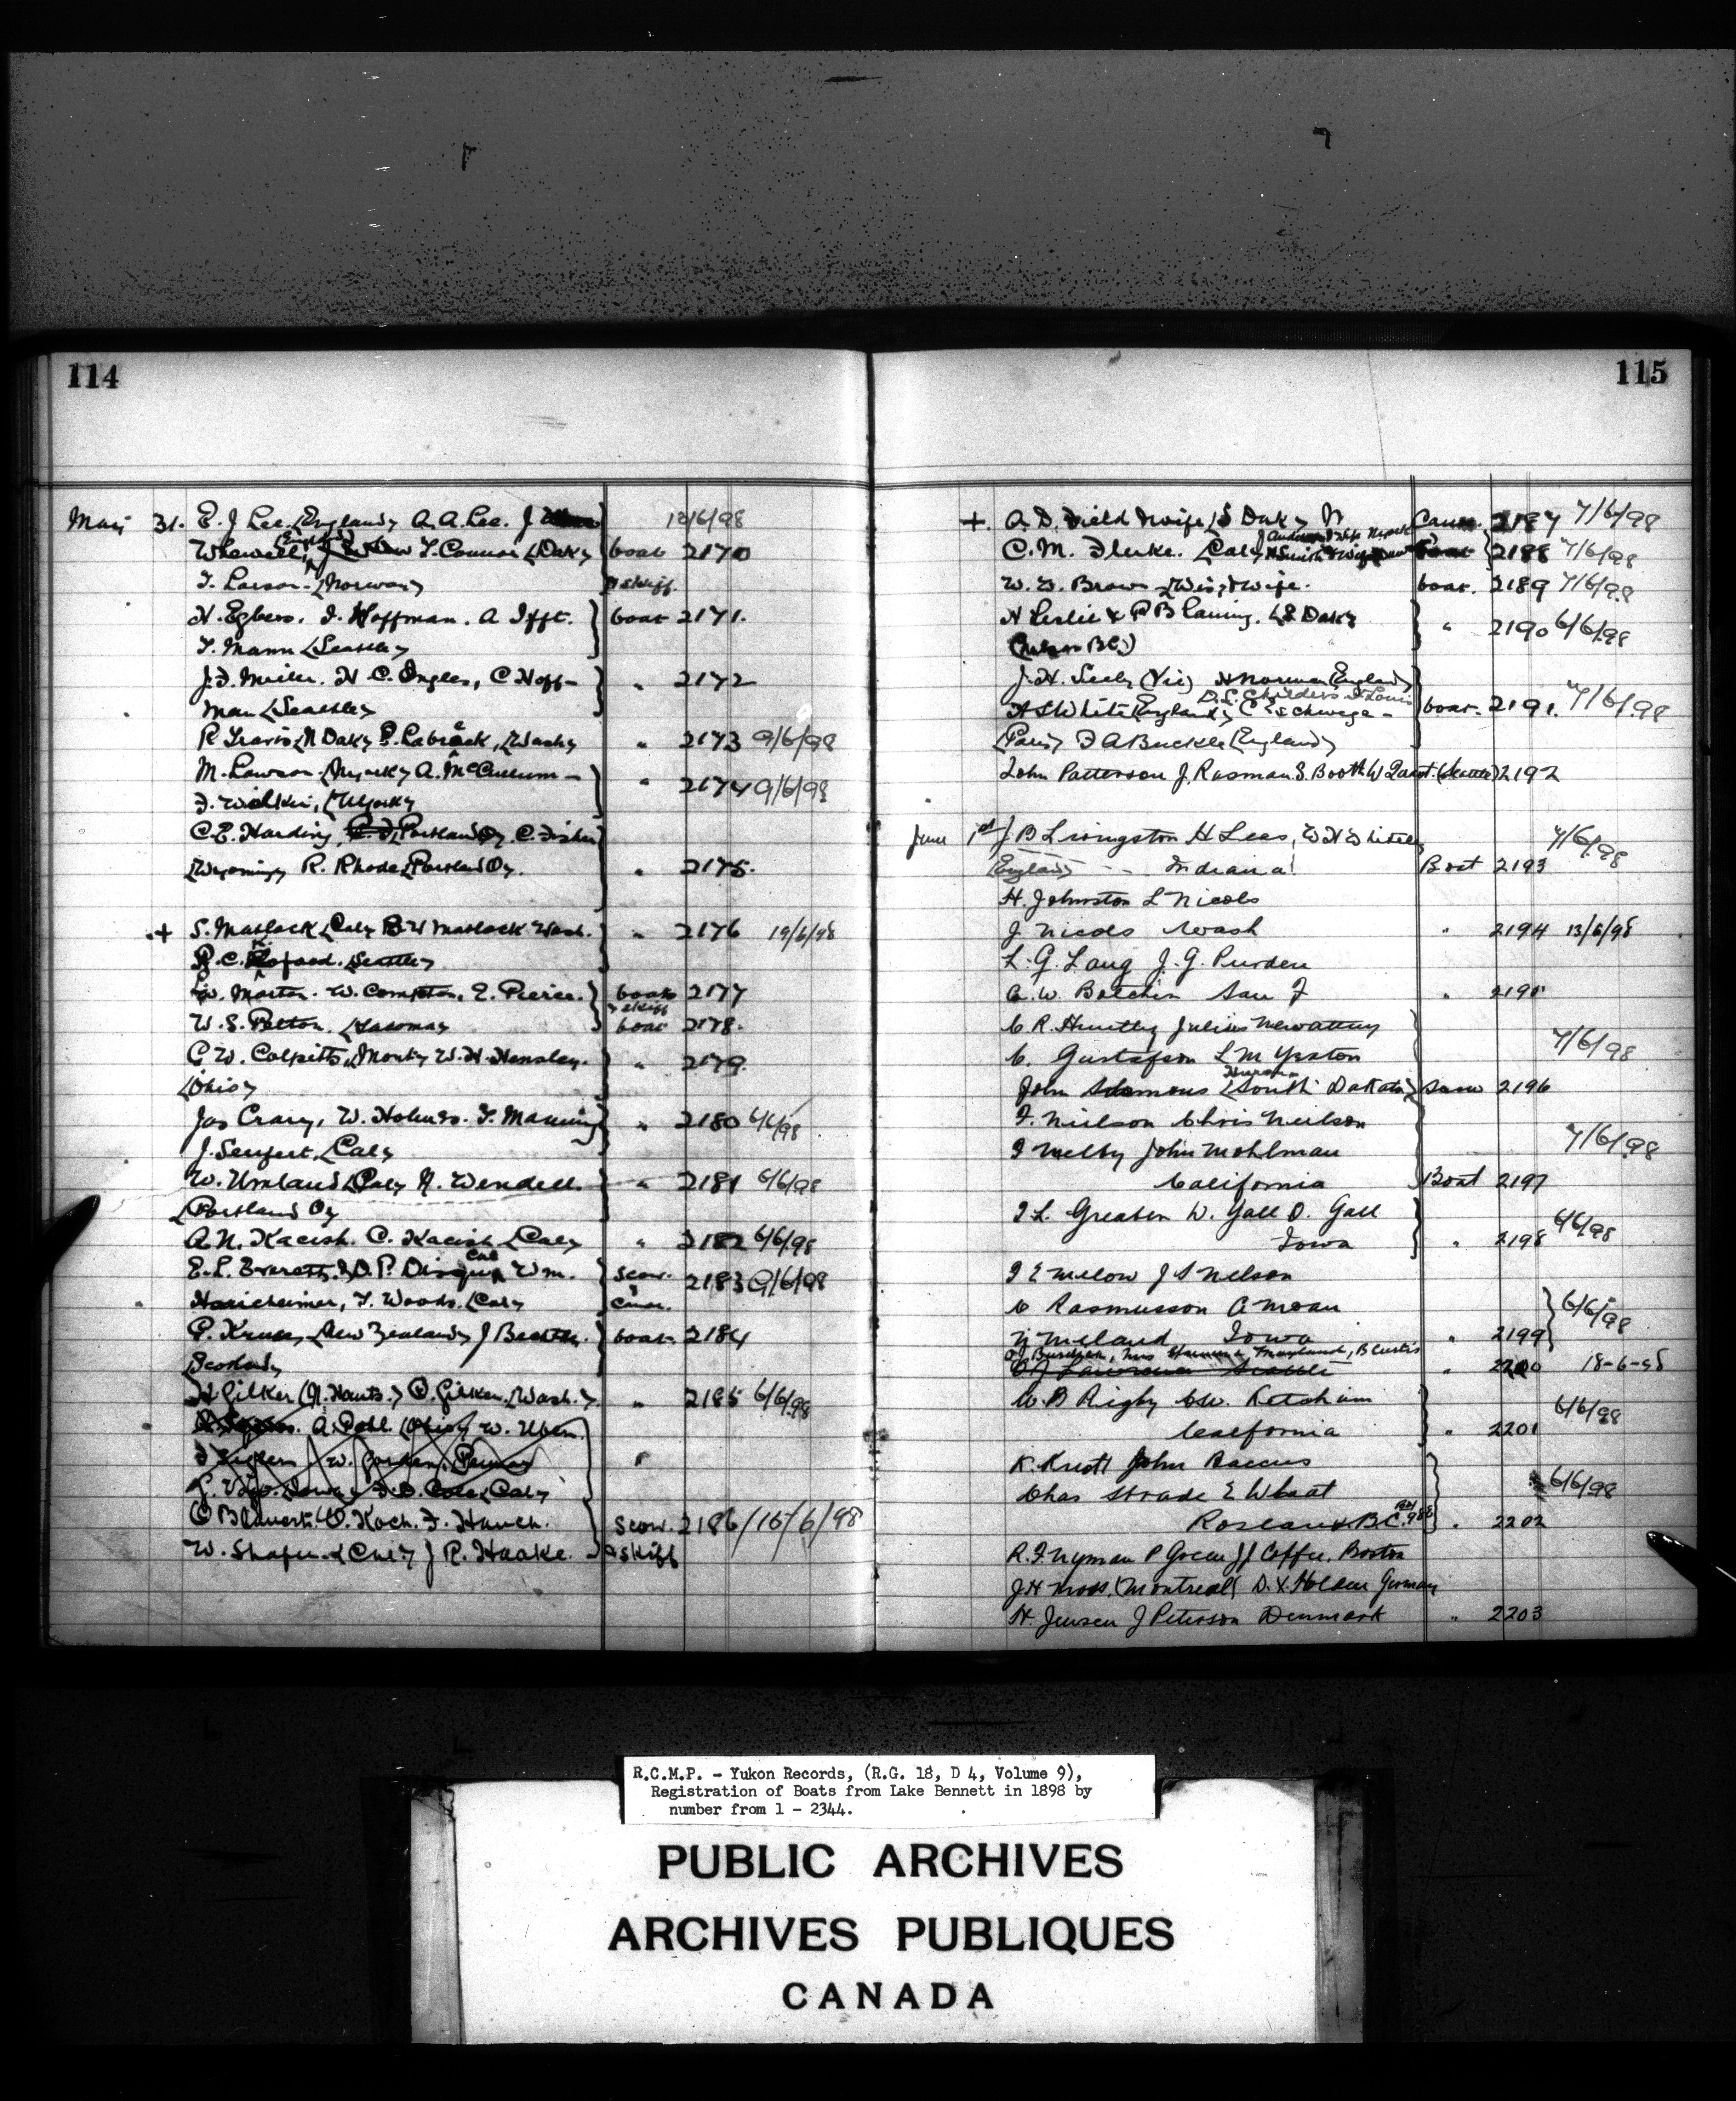 114
May 31. E. J Lee. (England) A. A. Lee. J
Whewell, (England) T. Connor (Dak) boat 2170 12/6/98
T. Larson. (Norway) & skiff.
H. Egbers. F. Hoffman. A Ifft. boat 2171.
T. Mann (Seattle)
J. F. Miller. H. C. Ingles, C Hoff- " 2172
man (Seattle)
R Travis (N Dak) P. Labreck, (Wash) " 2173 9/6/98
M. Lawson. (N. York) A. McCullum - " 2174 9/6/98
F. Wilkin, (N York)
C. E. Harding, (Portland Or) C. Fisher
(Wyoming) R. Rhode (Portland Or). " 2175.
+ S. Matlock (Cal) B W Matlock Wash. " 2176 19/6/98
R. C. (Seattle)
W. Morton. W. Compton, E. Pierce. boat & skiff 2177
W. S. Pelton. (Tacoma) boat 2178.
C W. Colpitts, (Mont) W. H. Hensley. " 2179.
(Ohio)
Jas Crary, W. Holmes. T. Manning " 2180 6/6/98
J. Senfert. (Cal)
W. Umland (Cal) N. Wendell. " 2181 6/6/98
(Portland Or)
A. N. Kacish. C. Kacish (Cal) " 2182 6/6/98
E. L. Everett, & D. P. Disque Cal Wm. scow. 2183 9/6/98
Haricheimer, T. Woods. (Cal) & canoe.
P. Kruse, (New Zealand) J boat. 2184
(Scotland)
H Gilker (N. Hants.) O. Gilker. (Wash.) " 2185 6/6/98
A. Pohl. (Ohio) W. Uben. "
W. Jordan.
(Iowa) F. D. Cole (Cal)
O Blauert. O. Koch. F. Hauch. scow. 2186 / 15/6/98
W. Shafer (Cal) J R. Haake. & skiff
115
+. A. D. Field & wife (S Dak) Canoe. 2187 7/6/98
C. M. Flerke. (Cal) 2188 7/6/98
W. W. Brown (Wis) & wife. boat. 2189 7/6/98
H Leslie & P B Laning. (S Dak) " 2190 6/6/98
(Nelson B C)
J. H. Seely (Vic) H Norman (England)
D. L. Childers St Louis
H S White (England) C Schwege - boat. 2191. 7/6/98
(Paris) F A Buckle (England)
John Patterson J. Rasman S. Booth W Quast. (Seattle) 2192
June 1st J. B Livingston H Leas, W H Whitely 7/6/98
(England) - - Indiana Boat 2193
H. Johnston L Nicols
J Nicols Wash " 2194 13/6/98
L. G. Lang J. G. Purden
C. W. Batchin San F " 2195
C. R. Huntley Julius Newattny
C. Gustafson L M Yeaton 7/6/98
Huron
John Solemons (South Dakota) Scow 2196
F. Nielson Chris Neilson
I Melby John Mohlman 7/6/98
California Boat 2197
I L. Greaben W. Gall O. Gall
Iowa " 2198 6/6/98
I E Melow J S Nelson
C Rasmusson A Moan 6/6/98
N Meland Iowa " 2199
Maryland, B Curtis
Seattle " 2200 18-6-98
W. B Rigby C. W. Ketcham
California " 2201 6/6/98
K. Knott John Baccus
Chas Strade E Wheat 6/6/98
Rossland B.C. " 2202
R. F. Nyman P Green J J Coffee. Boston
J H Moss. (Montreal) D. X. Holden German
H. Jensen J Peterson Denmark " 2203
R.C.M.P. - Yukon Records, (R.G. 18, D 4, Volume 9),
Registration of Boats from Lake Bennett in 1898 by
number from 1 - 2344.
PUBLIC ARCHIVES
ARCHIVES PUBLIQUES
CANADA